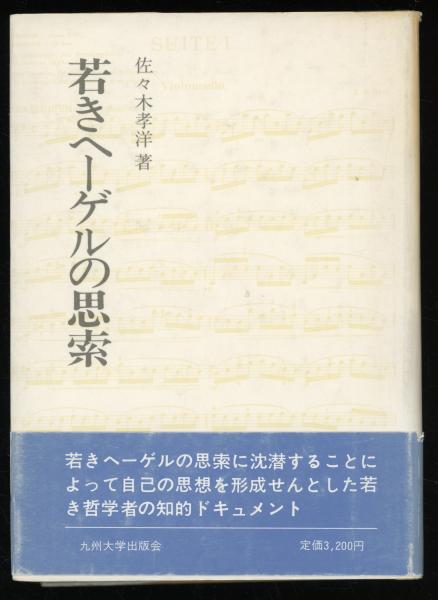 SUITE I
Violoncello
若きヘーゲルの思索
佐々木孝洋 著
若きヘーゲルの思索に沈潜することに
よって自己の思想を形成せんとした若
き哲学者の知的ドキュメント
九州大学出版会
定価3,200円